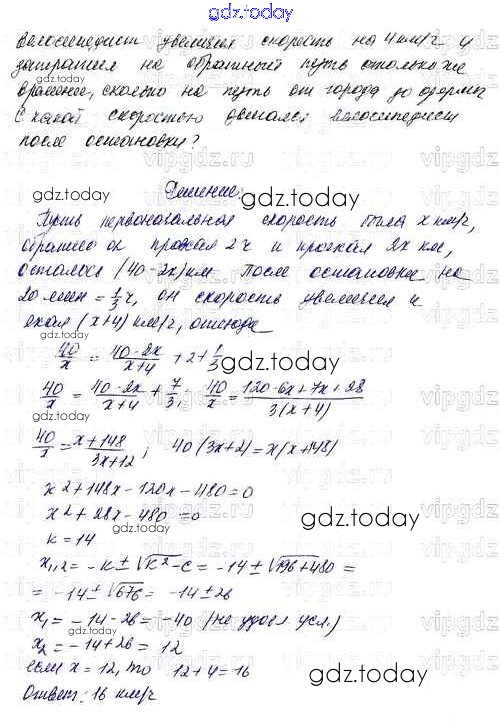 gdz.today
велосипедист увеличил скорость на 4 км/ч и
затратил на обратный путь столько же
времени, сколько на путь от города до озера.
С какой скоростью двигался велосипедист
после остановки?
Решение.
Пусть первоначальная скорость была x км/ч,
обратно он проехал 2ч и проехал 2x км,
осталось (40-2x) км. После остановки на
20 мин = 1/3 ч, он скорость увеличил и
ехал (x+4) км/ч, отсюда
40/x = (40-2x)/(x+4) + 2 + 1/3
40/x = (40-2x)/(x+4) + 7/3; 40/x = (120-6x+7x+28)/(3(x+4))
40/x = (x+148)/(3x+12); 40(3x+2)=x(x+148)
x²+148x-120x-480=0
x²+28x-480=0
k=14
x₁,₂ = -k ± √k²-c = -14 ± √196+480 =
= -14 ± √676 = -14 ± 26
x₁ = -14-26 = -40 (не удовл. усл.)
x₂ = -14+26 = 12
если x=12, то 12+4=16
Ответ: 16 км/ч